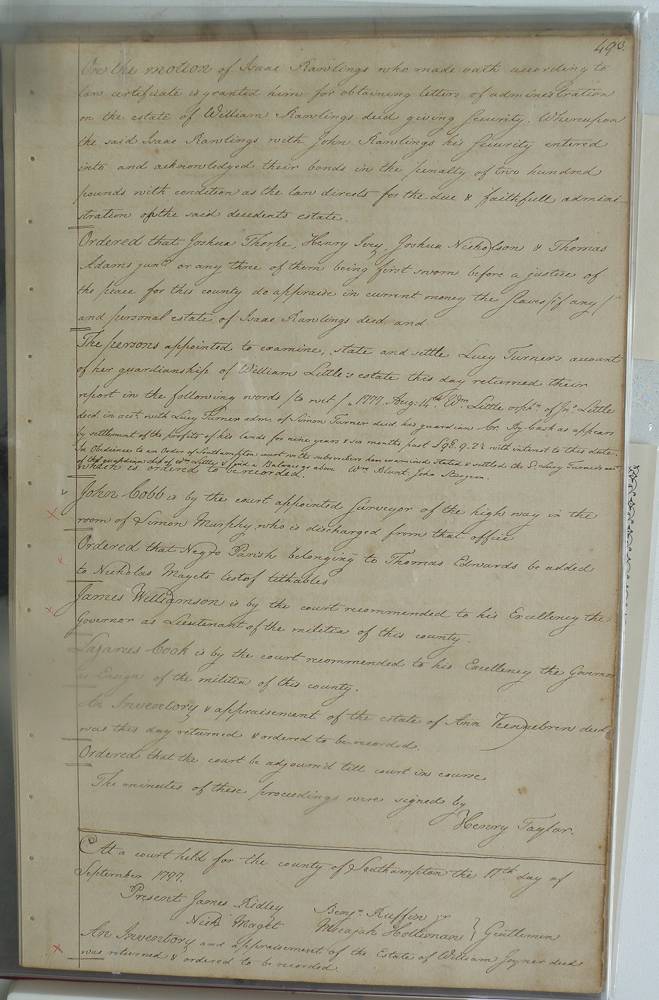 490.
On the motion of Isaac Rawlings who made oath according to
law certificate is granted him for obtaining letters of administration
on the estate of William Rawlings deced giving Security. Whereupon
the said Isaac Rawlings with John Rawlings his Security entered
into and acknowledged their bonds in the penalty of two hundred
pounds with condition as the law directs for the due & faithfull adminis-
tration of the said decedents estate.
Ordered that Joshua Thorpe, Henry Ivey, Joshua Nicholson & Thomas
Adams junr. or any three of them being first sworn before a justice of
the peace for this county do appraise in current money the slaves (if any)
and personal estate of Isaac Rawlings deced and
The persons appointed to examine, state and settle Lucy Turner's account
of her guardianship of William Little's estate this day returned their
report in the following words (to wit) 1777. Aug: 4th. Wm. Little orph. of Jno. Little
deced in acct with Lucy Turner adm. of Simon Turner deced his guardian Cr. By cash as appears
by settlement of the profits of his lands for nine years & six months past £98.9.2½ with interest to this date.
In Obedience to an Order of Southampton court we the subscribers have examined stated & settled the Lucy Turner's acct
of the guardianship of Wm Little & find a Balance as above Wm Blunt, John Sturgeon.
which is ordered to be recorded.
John Cobb is by the court appointed Surveyor of the high way in the
room of Simon Murphy who is discharged from that office
Ordered that Negro Parish belonging to Thomas Edwards be added
to Nicholas Magets list of tithables
James Williamson is by the court recommended to his Excellency the
Governor as Lieutenant of the militia of this county.
Lazarus Cook is by the court recommended to his Excellency the Governor
as Ensign of the militia of this county.
An Inventory & appraisement of the estate of Ann deced
was this day returned & ordered to be recorded.
Ordered that the court be adjourn'd till court in course
The minutes of these proceedings were signed by
Henry Taylor.
At a court held for the county of Southampton the 11th day of
September 1797.
Present James Ridley Benjn. Ruffin jr
Nichs. Maget Micajah Holliman } Gentlemen
An Inventory and appraisement of the Estate of William Joyner deced
was returned & ordered to be recorded